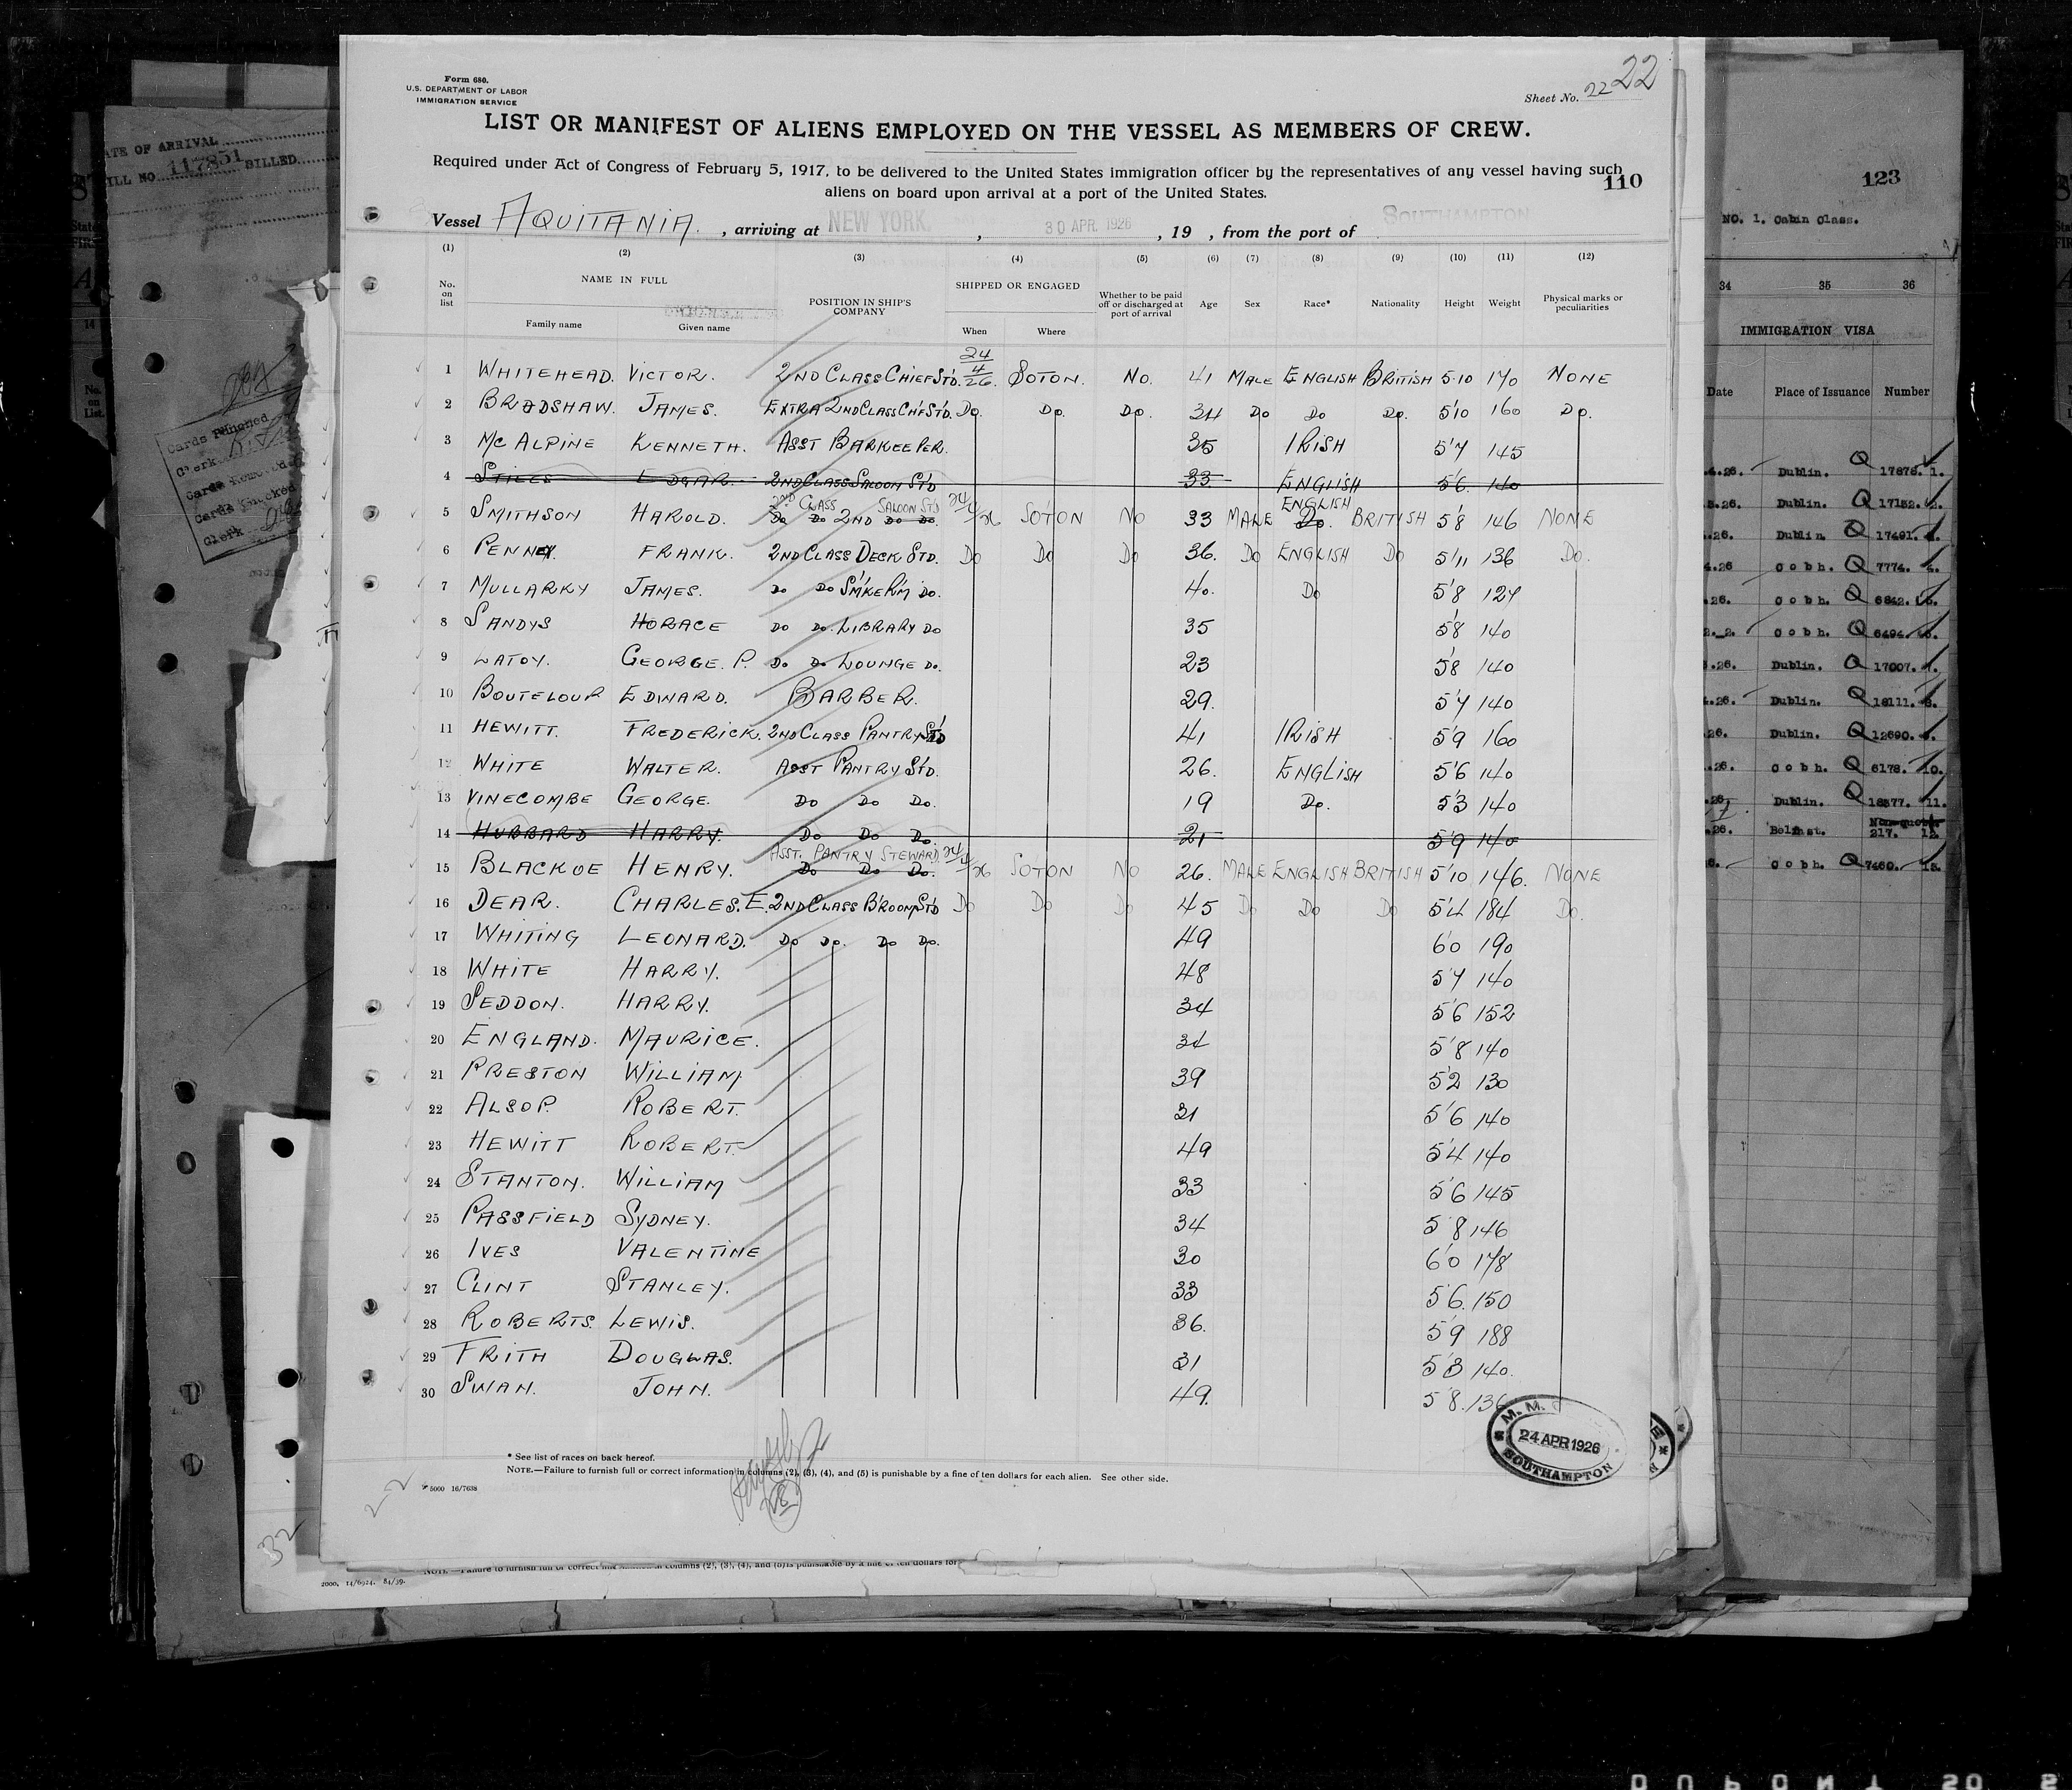 Form 680.
U.S. DEPARTMENT OF LABOR
IMMIGRATION SERVICE
Sheet No. 22 22
LIST OR MANIFEST OF ALIENS EMPLOYED ON THE VESSEL AS MEMBERS OF CREW.
Required under Act of Congress of February 5, 1917, to be delivered to the United States immigration officer by the representatives of any vessel having such
aliens on board upon arrival at a port of the United States.
110
Vessel AQUITANIA. , arriving at NEW YORK , 30 APR. 1926 , 19 , from the port of SOUTHAMPTON
(1) (2) (3) (4) (5) (6) (7) (8) (9) (10) (11) (12)
No. on list NAME IN FULL Family name Given name POSITION IN SHIP'S COMPANY SHIPPED OR ENGAGED When Where Whether to be paid off or discharged at port of arrival Age Sex Race* Nationality Height Weight Physical marks or peculiarities
1 WHITEHEAD. VICTOR. 2ND CLASS CHIEF ST'D. 24/4/26. SOTON. NO. 41 MALE ENGLISH BRITISH 5.10 170 NONE
2 BRADSHAW. JAMES. EXTRA 2ND CLASS CH'F ST'D. Do. Do. Do. 34 Do Do Do. 5'10 160 Do.
3 MC ALPINE KENNETH. ASST BARKEEPER. 35 IRISH 5'7 145
4 STILES EDGAR. 2ND CLASS SALOON ST'D 33 ENGLISH 5'6 140
2ND CLASS SALOON ST'D ENGLISH
5 SMITHSON HAROLD. Do Do 2ND Do Do. 24/4/26 SOTON NO 33 MALE Do. BRITISH 5'8 146 NONE
6 PENNEY. FRANK. 2ND CLASS DECK STD. Do Do Do 36. Do ENGLISH Do 5'11 136 Do.
7 MULLARKY JAMES. Do Do SM'KE R'M Do. 40. Do 5'8 127
8 SANDYS HORACE Do Do. LIBRARY Do 35 5'8 140
9 LATOY. GEORGE. P. Do Do LOUNGE Do. 23 5'8 140
10 BOUTELOUP EDWARD. BARBER. 29. 5'7 140
11 HEWITT. FREDERICK. 2ND CLASS PANTRY ST'D 41 IRISH 5'9 160
12 WHITE WALTER. ASST PANTRY ST'D. 26. ENGLISH 5'6 140
13 VINECOMBE GEORGE. Do Do Do. 19 Do. 5'3 140
14 HUBBARD HARRY. Do Do Do. 21 5'9 140
ASST. PANTRY STEWARD
15 BLACKOE HENRY. Do Do Do. 24/4/26 SOTON NO 26. MALE ENGLISH BRITISH 5'10 146. NONE
16 DEAR. CHARLES. E. 2ND CLASS B'ROOM ST'D Do Do Do 45 Do Do Do 5'4 184 Do.
17 WHITING LEONARD. Do Do. Do Do. 49 6'0 190
18 WHITE HARRY. 48 5'7 140
19 SEDDON. HARRY. 34 5'6 152
20 ENGLAND. MAURICE. 34 5'8 140
21 PRESTON WILLIAM 39 5'2 130
22 ALSOP. ROBERT. 31 5'6 140
23 HEWITT ROBERT. 49 5'4 140
24 STANTON. WILLIAM 33 5'6 145
25 PASSFIELD SYDNEY. 34 5'8 146
26 IVES VALENTINE 30 6'0 178
27 CLINT STANLEY. 33 5'6. 150
28 ROBERTS. LEWIS. 36. 5'9 188
29 FRITH DOUGLAS. 31 5'3 140.
30 SWAN. JOHN. 49. 5'8. 136
24 APR 1926
SOUTHAMPTON
* See list of races on back hereof.
NOTE.—Failure to furnish full or correct information in columns (2), (3), (4), and (5) is punishable by a fine of ten dollars for each alien. See other side.
5000 16/7638
22
32
2000. 14/6924. 84/39.
DATE OF ARRIVAL
BILL NO 117851 BILLED
Cards Punched
Clerk
Cards Removed
Cards Checked
Clerk
123
NO. 1. Cabin Class.
34 35 36
IMMIGRATION VISA
Date Place of Issuance Number
.4.26. Dublin. Q 17876. 1.
.3.26. Dublin. Q 17152. 2.
.26. Dublin. Q 17491. 3.
.26 Cobh. Q 7774. 4.
.26. Cobh. Q 6842. 5.
Cobh. Q 6494. 6.
.26. Dublin. Q 17007. 7.
.26. Dublin. Q 18111. 8.
26. Dublin. Q 12690. 9.
.26. Cobh. Q 6178. 10.
.26. Dublin. Q 18377. 11.
.26. Belfast. Non-quota 217. 12.
Cobh. Q 7460. 13.